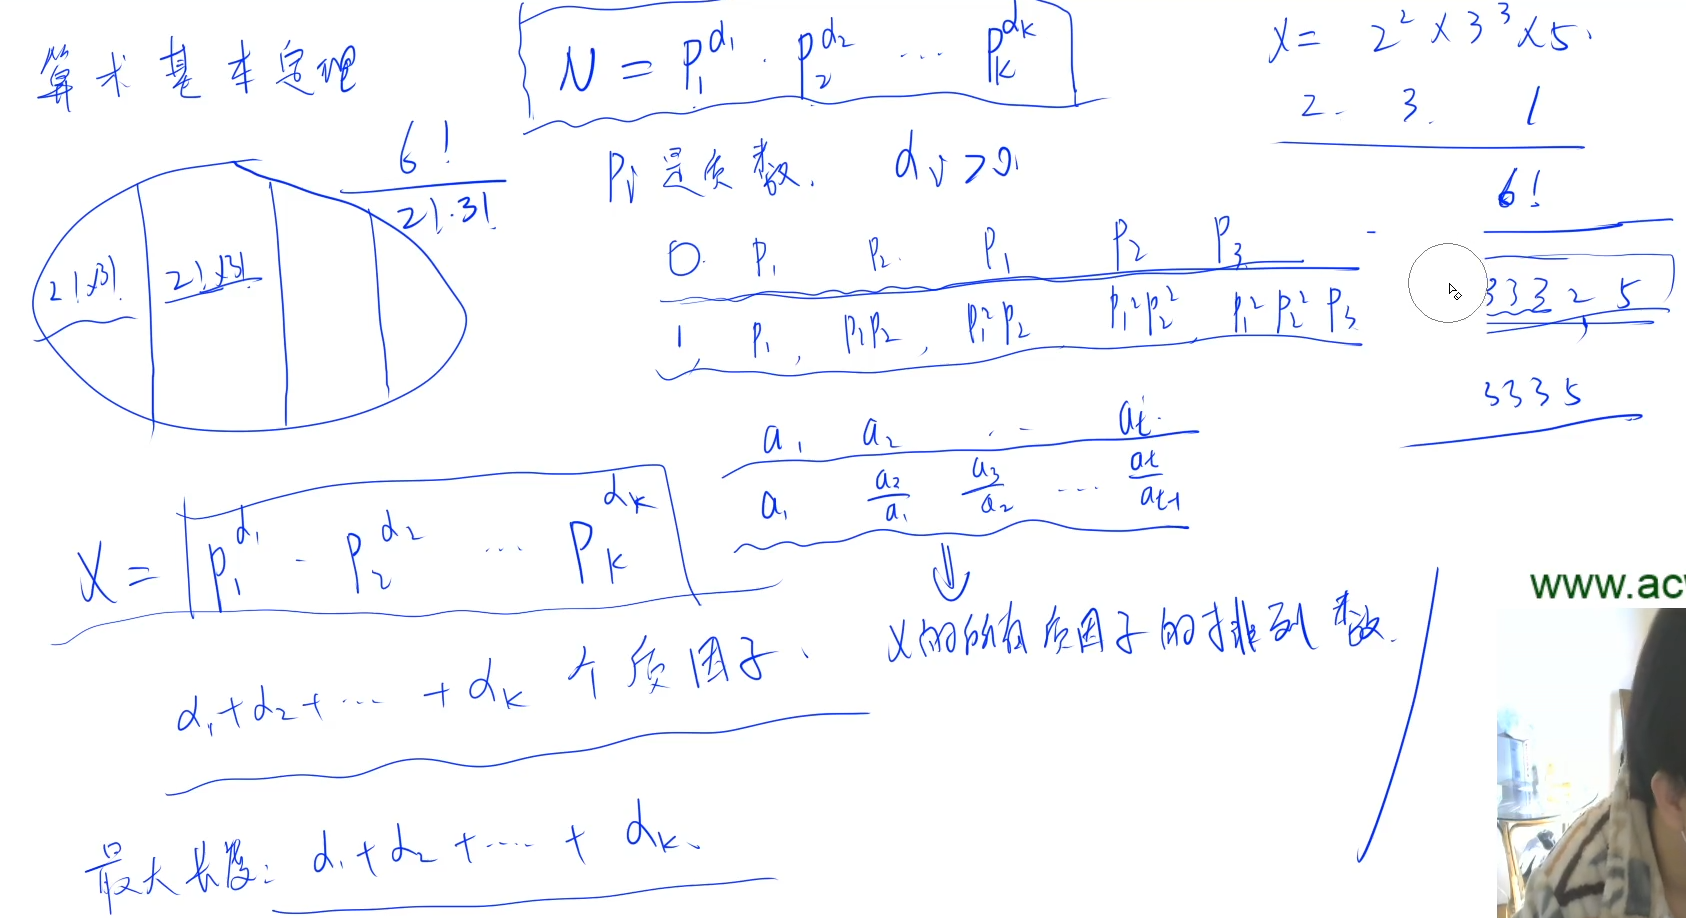 算术基本定理
N = p₁^α₁ · p₂^α₂ … p_k^α_k
pᵢ 是质数. αᵢ > 0.
x = 2² × 3³ × 5.
2. 3. 1
6!
3 3 3 2 5
3 3 3 5
6!
2!·3!
2!×3! 2!×3!
0. p₁ p₂. p₁ p₂ p₃
1, p₁, p₁p₂, p₁²p₂ p₁²p₂² p₁²p₂²p₃
a₁ a₂ … a_t.
a₁ a₂/a₁ a₃/a₂ … a_t/a_{t-1}
⇓
x的所有质因子的排列数.
x = p₁^α₁ · p₂^α₂ … p_k^α_k
α₁+α₂+…+α_k 个质因子、
最大长度: α₁+α₂+…+α_k、
www.ac